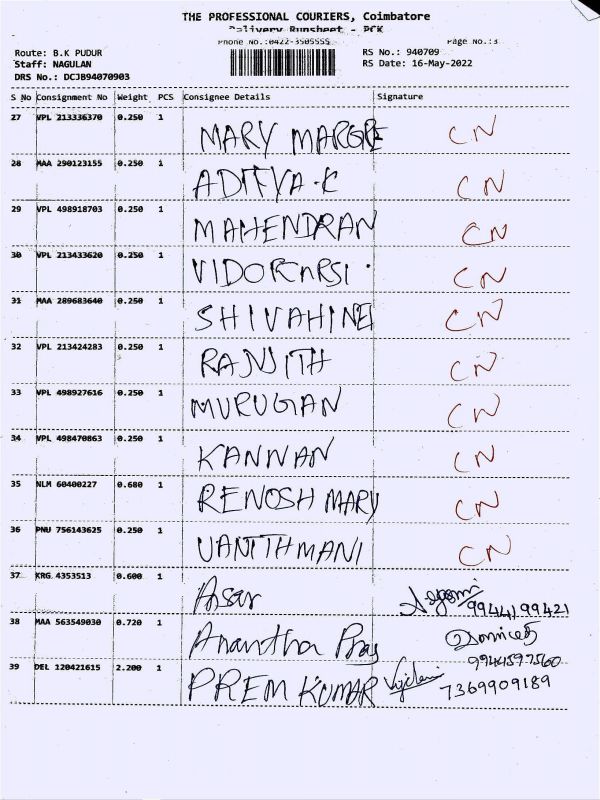 THE PROFESSIONAL COURIERS, Coimbatore
Delivery Runsheet - PCK
Phone No.:0422-3505555 Page No.:3
Route: B.K PUDUR RS No.: 940709
Staff: NAGULAN RS Date: 16-May-2022
DRS No.: DCJB94070903
S No Consignment No Weight PCS Consignee Details Signature
27 VPL 213336370 0.250 1 MARY MARGRE CN
28 MAA 290123155 0.250 1 ADITYA.K CN
29 VPL 498918703 0.250 1 MAHENDRAN CN
30 VPL 213433620 0.250 1 CN
31 MAA 289683640 0.250 1 SHIVAHINEI CN
32 VPL 213424283 0.250 1 RANJITH CN
33 VPL 498927616 0.250 1 MURUGAN CN
34 VPL 498470863 0.250 1 KANNAN CN
35 NLM 60400227 0.680 1 RENOSH MARY CN
36 PNU 756143625 0.250 1 VANITHMANI CN
37 KRG 4353513 0.600 1 Asar 9944199421
38 MAA 563549030 0.720 1 Anantha Pray 9944597560
39 DEL 120421615 2.200 1 PREM KUMAR 7369909189